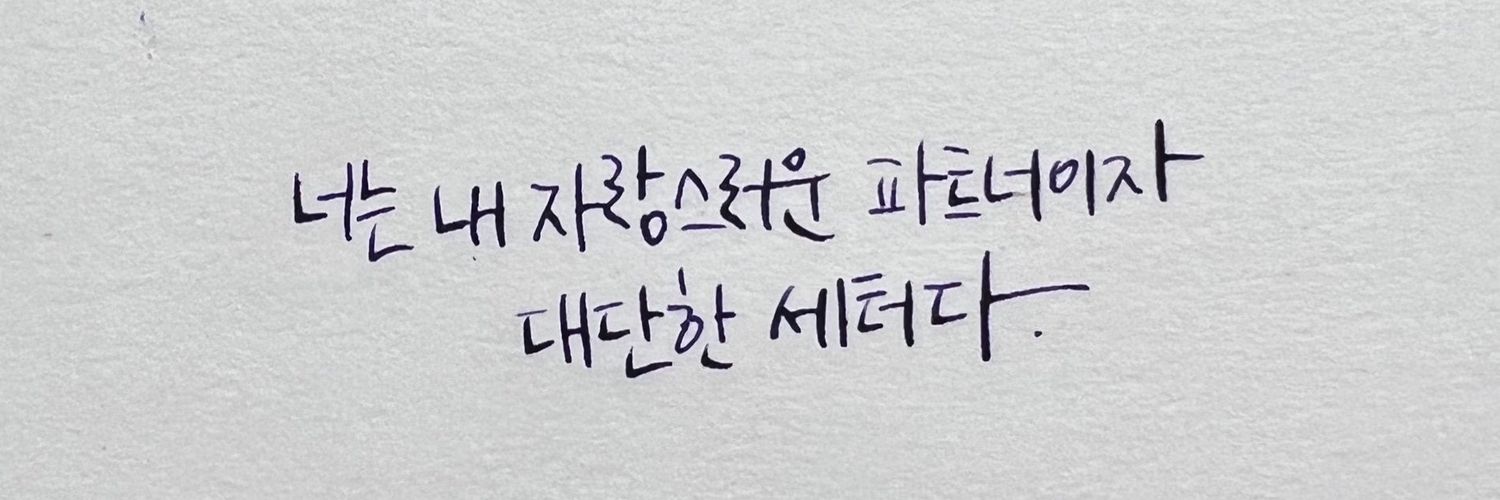 너는 내 자랑스러운 파트너이자
대단한 세터다.